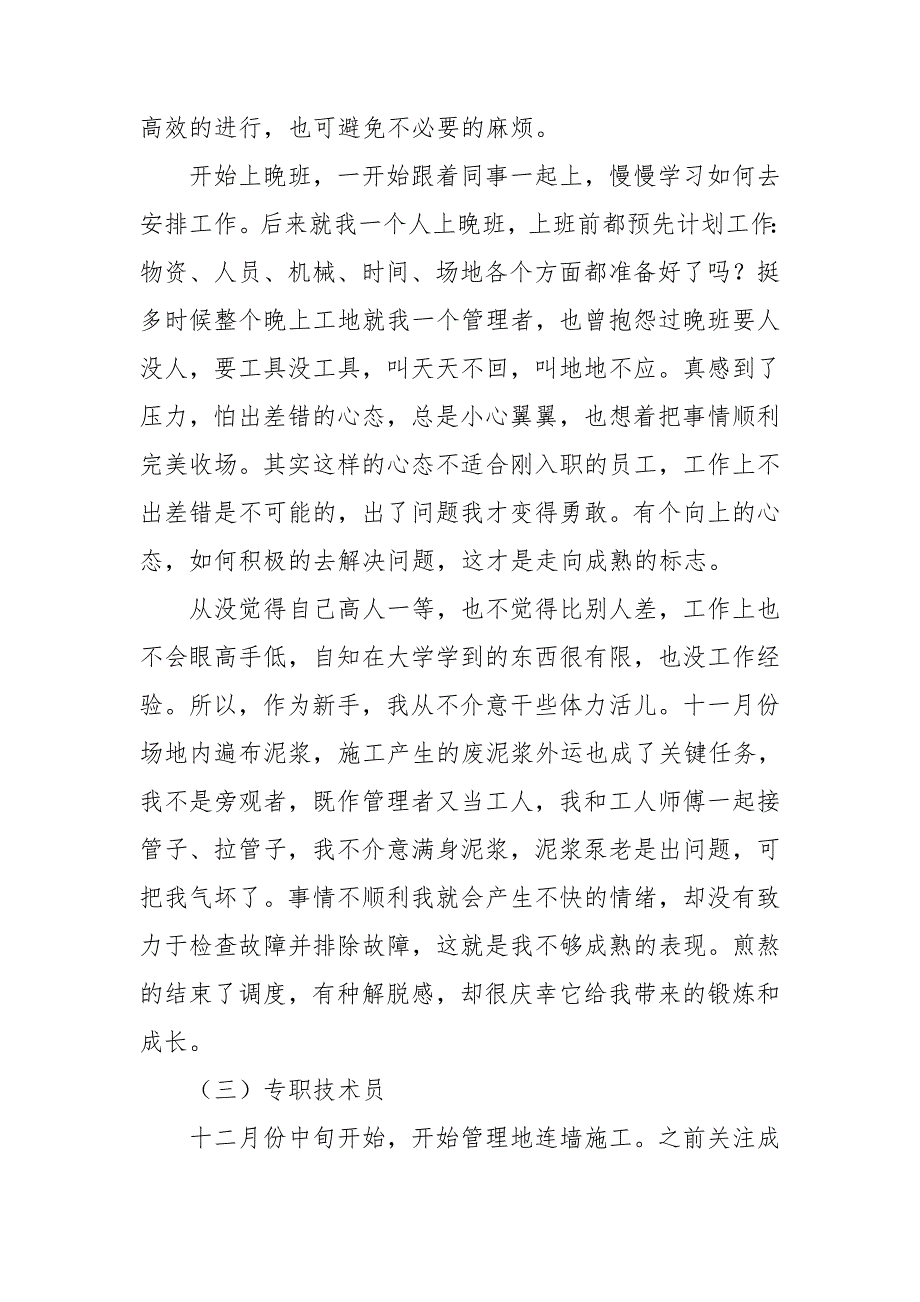 高效的进行，也可避免不必要的麻烦。
开始上晚班，一开始跟着同事一起上，慢慢学习如何去
安排工作。后来就我一个人上晚班，上班前都预先计划工作：
物资、人员、机械、时间、场地各个方面都准备好了吗？挺
多时候整个晚上工地就我一个管理者，也曾抱怨过晚班要人
没人，要工具没工具，叫天天不回，叫地地不应。真感到了
压力，怕出差错的心态，总是小心翼翼，也想着把事情顺利
完美收场。其实这样的心态不适合刚入职的员工，工作上不
出差错是不可能的，出了问题我才变得勇敢。有个向上的心
态，如何积极的去解决问题，这才是走向成熟的标志。
从没觉得自己高人一等，也不觉得比别人差，工作上也
不会眼高手低，自知在大学学到的东西很有限，也没工作经
验。所以，作为新手，我从不介意干些体力活儿。十一月份
场地内遍布泥浆，施工产生的废泥浆外运也成了关键任务，
我不是旁观者，既作管理者又当工人，我和工人师傅一起接
管子、拉管子，我不介意满身泥浆，泥浆泵老是出问题，可
把我气坏了。事情不顺利我就会产生不快的情绪，却没有致
力于检查故障并排除故障，这就是我不够成熟的表现。煎熬
的结束了调度，有种解脱感，却很庆幸它给我带来的锻炼和
成长。
（三）专职技术员
十二月份中旬开始，开始管理地连墙施工。之前关注成